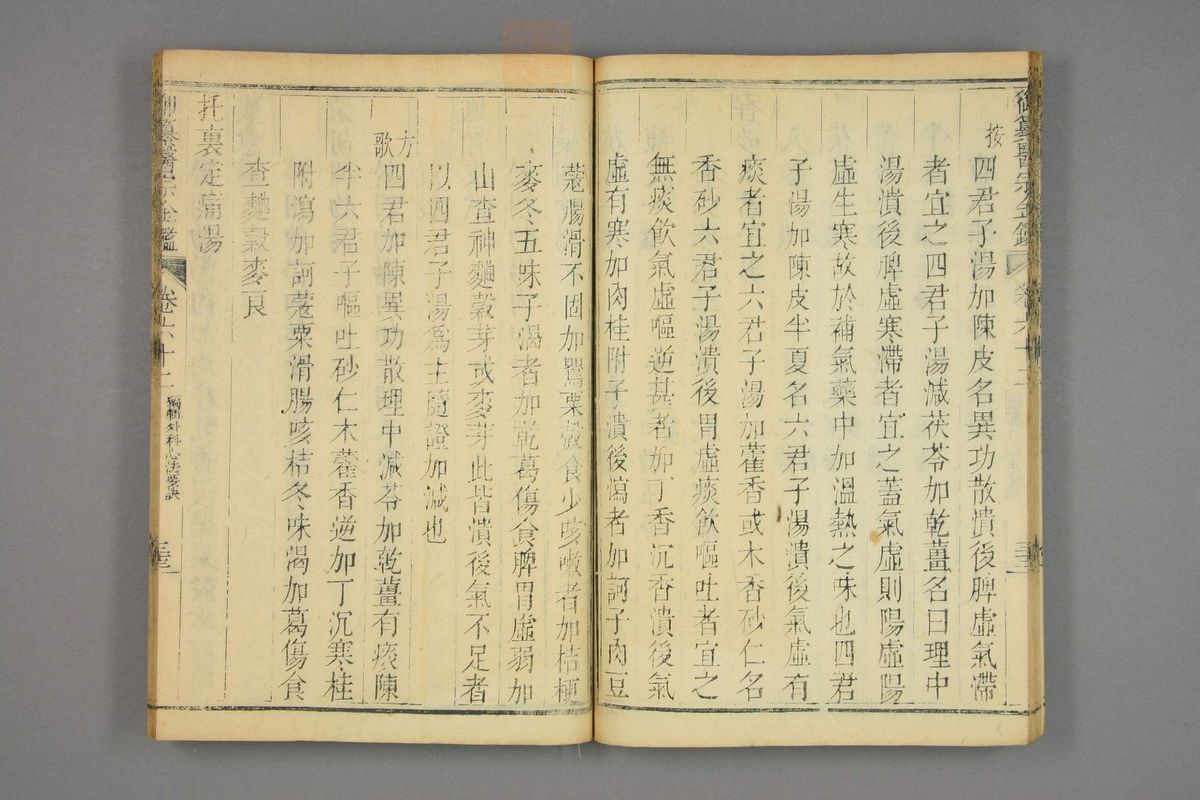 御纂醫宗金鑑 卷六十二
按四君子湯加陳皮名異功散潰後脾虛氣滯
者宜之四君子湯減茯苓加乾薑名曰理中
湯潰後脾虛寒滯者宜之蓋氣虛則陽虛陽
虛生寒故於補氣藥中加溫熱之味也四君
子湯加陳皮半夏名六君子湯潰後氣虛有
痰者宜之六君子湯加藿香或木香砂仁名
香砂六君子湯潰後胃虛痰飲嘔吐者宜之
無痰飲氣虛嘔逆甚者加丁香沉香潰後氣
虛有寒加肉桂附子潰後瀉者加訶子肉豆
蔻腸滑不固加罌粟殼食少咳嗽者加桔梗
麥冬五味子渴者加乾葛傷食脾胃虛弱加
山查神麯穀芽或麥芽此皆潰後氣不足者
以四君子湯爲主隨證加減也
方歌 四君加陳異功散理中減苓加乾薑有痰陳
半六君子嘔吐砂仁木藿香逆加丁沉寒桂
附瀉加訶蔻粟滑腸咳桔冬味渴加葛傷食
查麯穀麥良
托裏定痛湯
御纂醫宗金鑑 卷六十二 編輯外科心法要訣